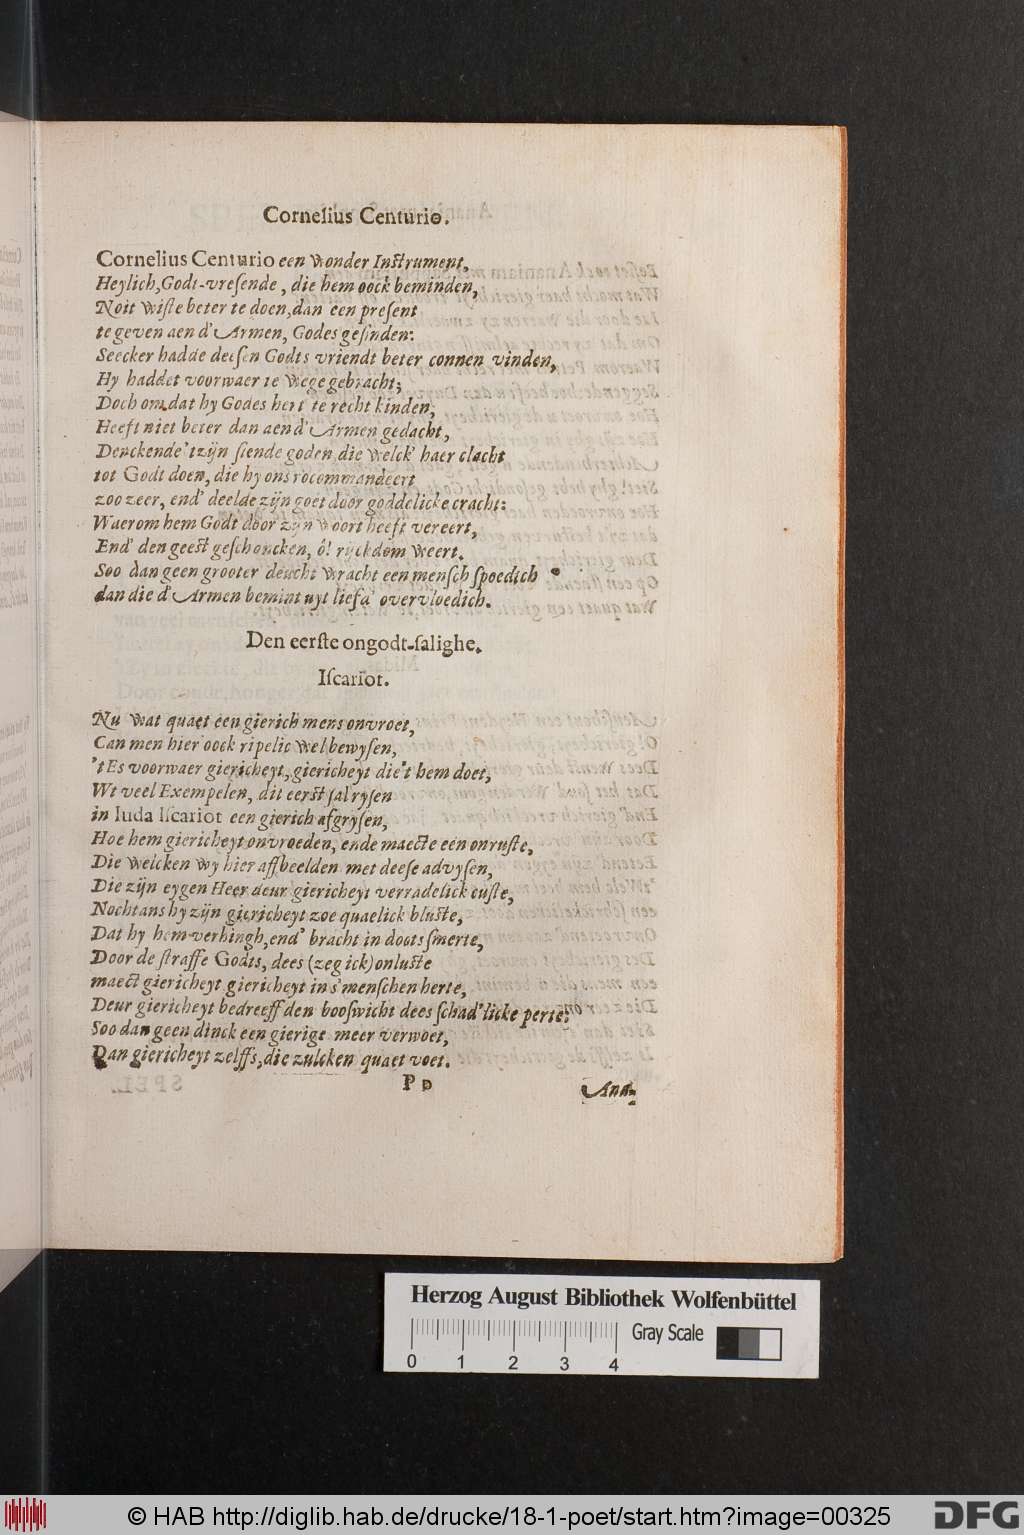 Cornelius Centurio.
Cornelius Centurio een wonder Instrument,
Heylich, Godt-vresende, die hem oock beminden,
Noit wiste beter te doen, dan een present
te geven aen d'Armen, Godes gesinden:
Seecker hadde deesen Godts vriendt beter connen vinden,
Hy haddet voorwaer te wege gebracht;
Doch om dat hy Godes hert te recht kinden,
Heeft niet beter dan aen d'Armen gedacht,
Denckende 't zijn siende goden die welck' haer clacht
tot Godt doen, die hy ons rocommandeert
zoo zeer, end' deelde zijn goet door goddelicke cracht:
Waerom hem Godt door zijn woort heeft vereert,
End' den geest geschoncken, ô! ryckdom weert.
Soo dan geen grooter deucht wracht een mensch spoedich
dan die d'Armen bemint uyt liefd' overvloedich.
Den eerste ongodt-salighe.
Iscariot.
Nu wat quaet een gierich mens onvroet,
Can men hier oock ripelic wel bewysen,
't Es voorwaer giericheyt, giericheyt die't hem doet,
Wt veel Exempelen, dit eerst sal rysen
in Iuda Iscariot een gierich afgrysen,
Hoe hem giericheyt onvroeden, ende maecte een onruste,
Die welcken wy hier affbeelden met deese advysen,
Die zijn eygen Heer deur giericheyt verradelick custe,
Nochtans hy zijn giericheyt zoe quaelick bluste,
Dat hy hem verhingh, end' bracht in doots smerte,
Door de straffe Godts, dees (zeg ick) onluste
maect giericheyt giericheyt in s'menschen herte,
Deur giericheyt bedreeff den booswicht dees schad'licke perte:
Soo dan geen dinck een gierige meer verwoet,
Dan giericheyt zelffs, die zulcken quaet voet.
P p
Ana-
Herzog August Bibliothek Wolfenbüttel
Gray Scale
0 1 2 3 4
© HAB http://diglib.hab.de/drucke/18-1-poet/start.htm?image=00325
DFG